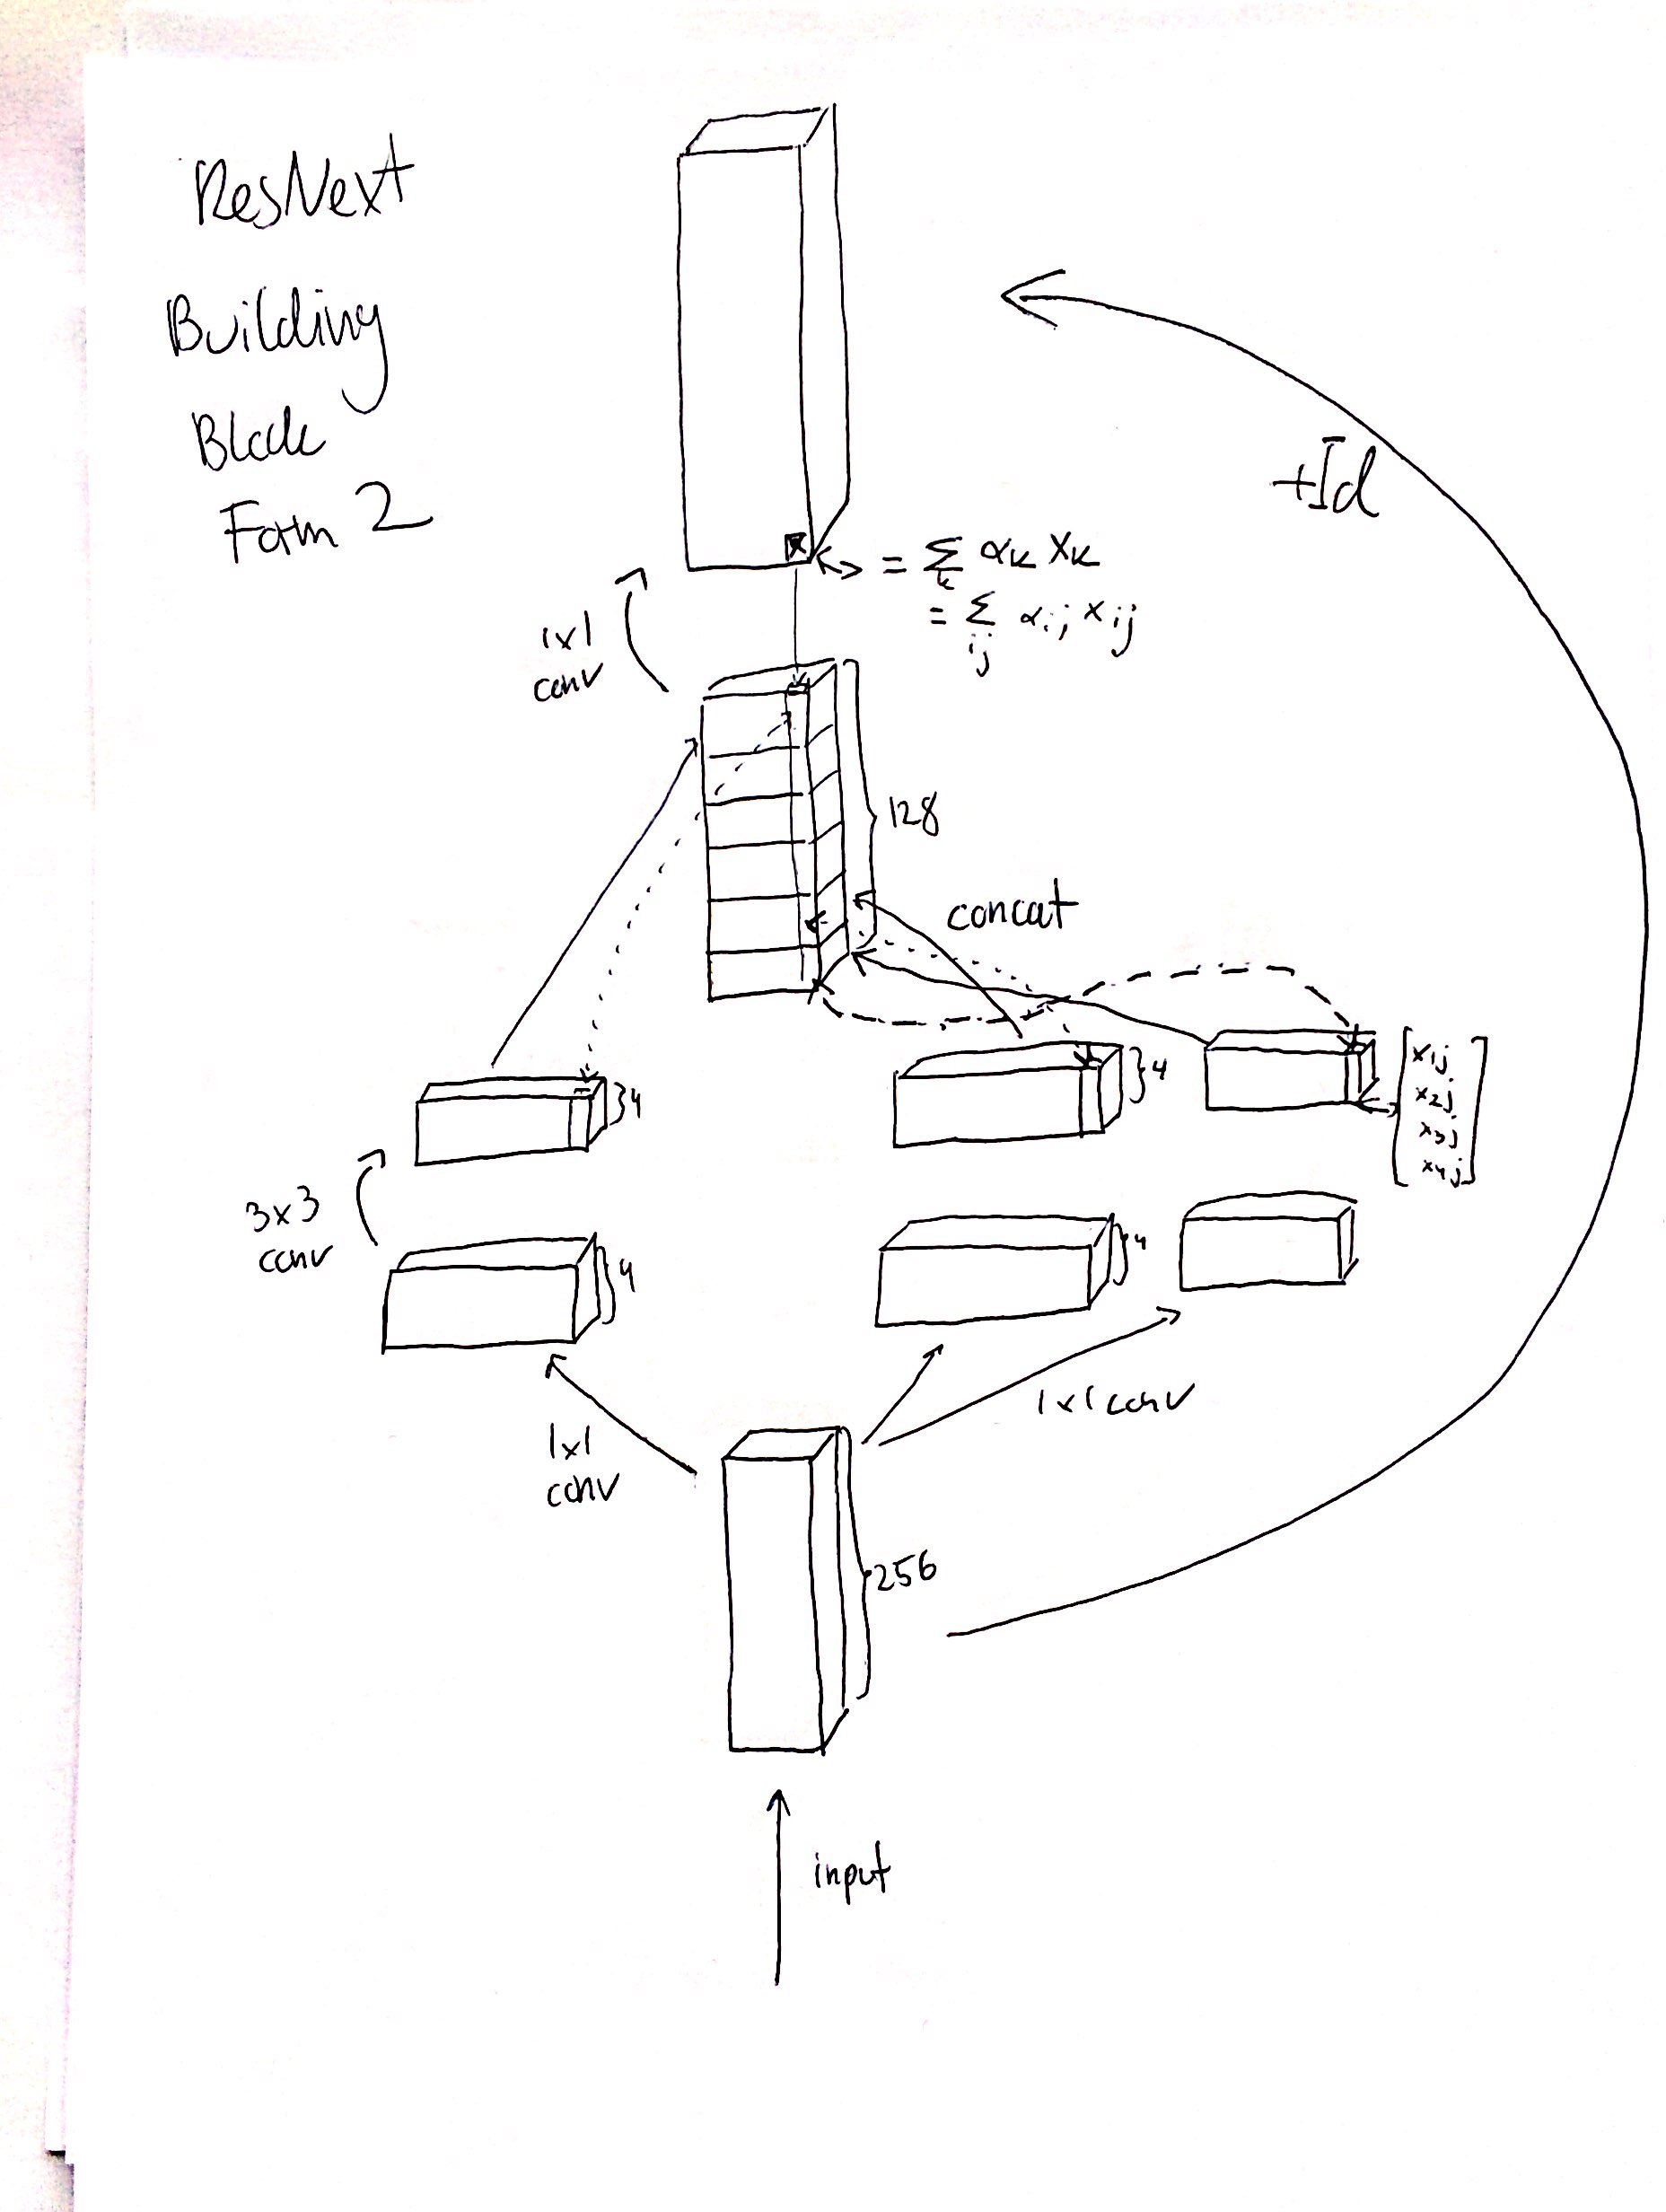 ResNext
Building
Block
Form 2
+Id
= Σ_k α_k x_k
= Σ_ij α_ij x_ij
1x1
conv
128
concat
}4
}4
x1j
x2j
x3j
x4j
3x3
conv
}4
}4
1x1 conv
1x1
conv
256
input